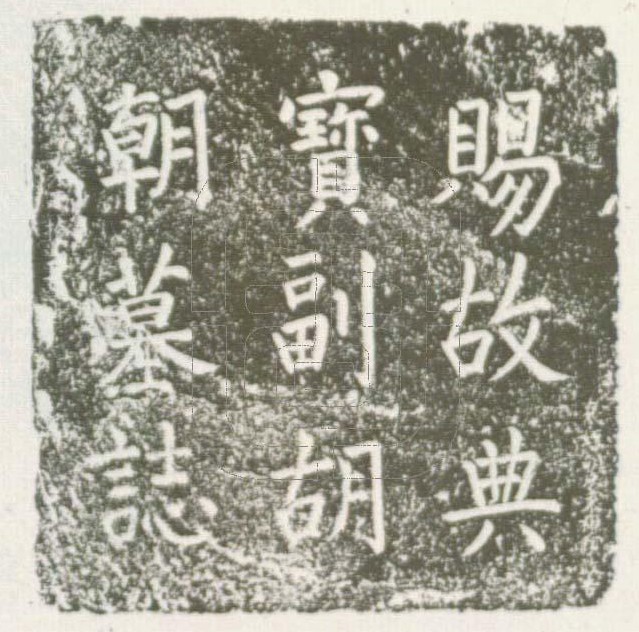 賜故典
寳副胡
朝墓誌